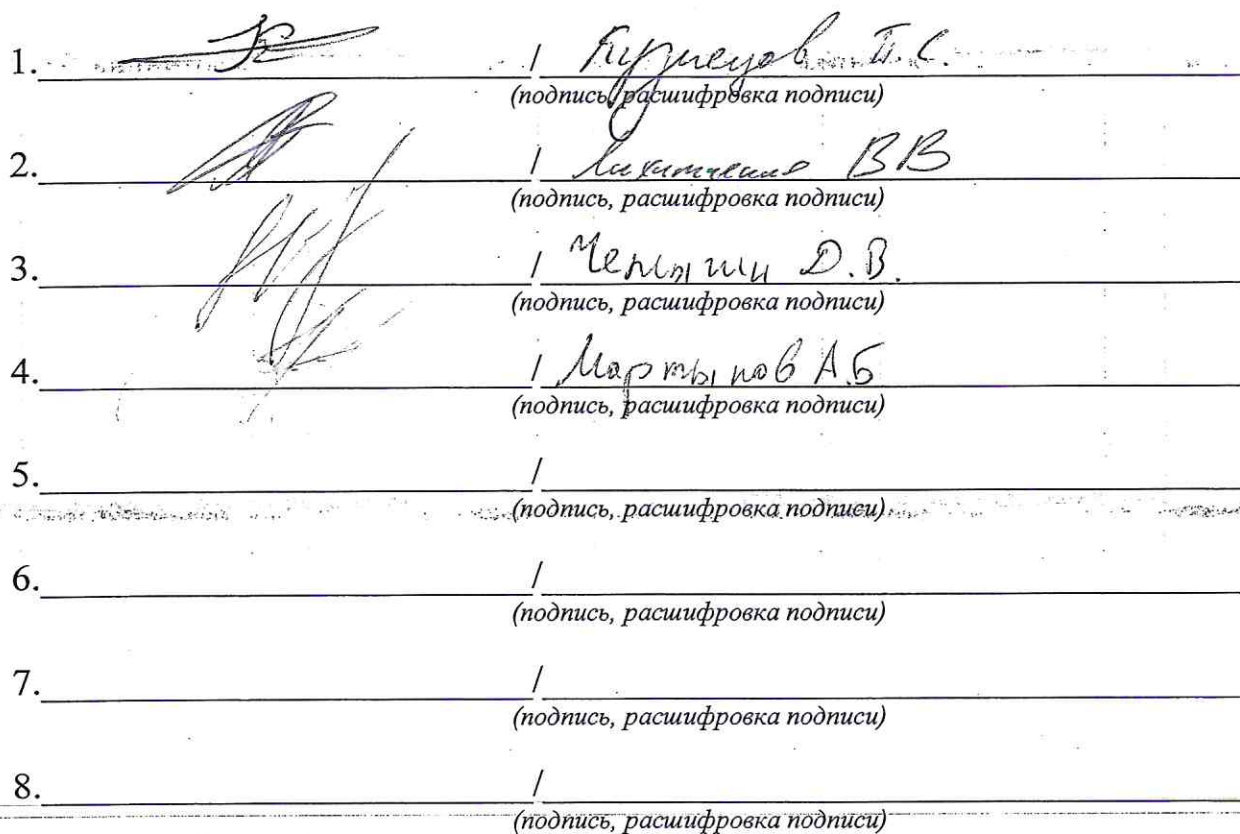 1. / Кузнецов П.С.
(подпись, расшифровка подписи)
2. / ВВ
(подпись, расшифровка подписи)
3. / Д.В.
(подпись, расшифровка подписи)
4. / Мартынов А.Б
(подпись, расшифровка подписи)
5. /
(подпись, расшифровка подписи)
6. /
(подпись, расшифровка подписи)
7. /
(подпись, расшифровка подписи)
8. /
(подпись, расшифровка подписи)